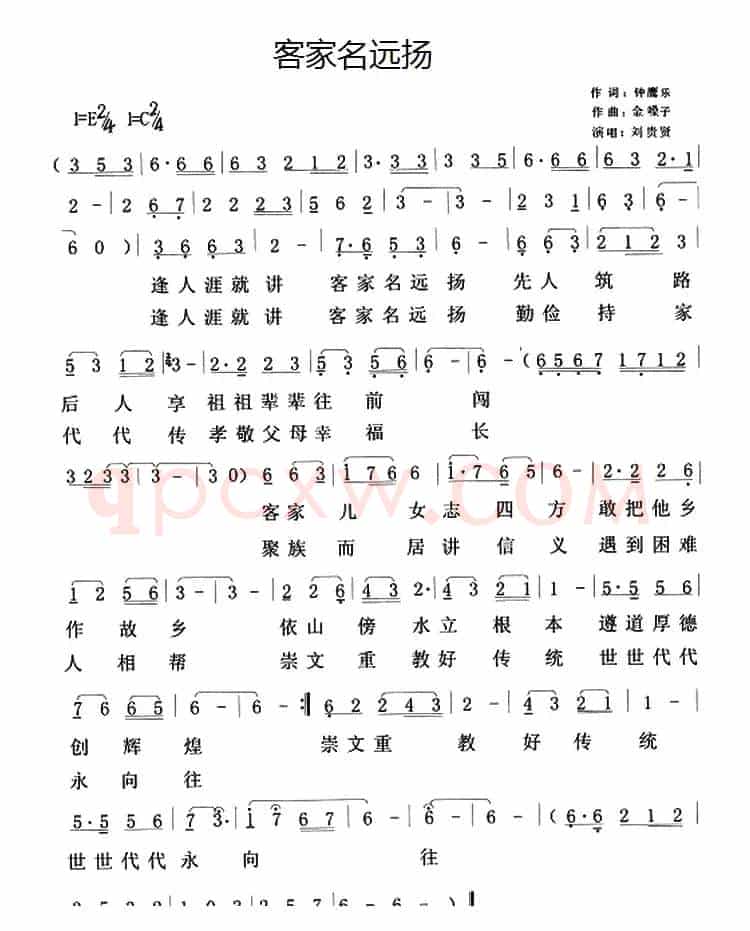 客家名远扬
作词：钟鹰乐
作曲：金嗓子
演唱：刘贵贤
1=E2/4 1=C2/4
(3 5 3 | 6· 6 6· 6 | 6 3 2 1 2 | 3· 3 3 3 | 3 3 5 | 6· 6 6· 6 | 6 3 2· 1 |
2 - | 2 6 7 | 2 2 2 3 | 5 6 2 | 3 - | 3 - | 2 3 1 | 6 3 | 6 - |
6 0 ) | 3 6 6 3 | 2 - | 7· 6 5 3 | 6 - | 6 6 3 | 2 1 2 3 |
逢人涯就讲 客家名远扬 先人筑路
逢人涯就讲 客家名远扬 勤俭持家
5 3 1 2 | 3 - | 2· 2 2 3 | 3 5 6 | 6 - | 6 - | (6 5 6 7 1 7 1 2 |
后人享祖祖辈辈往前闯
代代传孝敬父母幸福长
3 2 3 3 | 3 - | 3 0) | 6 6 3 | 1 7 6 | 1· 7 6 5 | 6 - | 2· 2 2 6 |
qpcxw.COM
客家儿女志四方敢把他乡
聚族而居讲信义遇到困难
1 2 5 6 | 3 - | 3 - | 2 2 6 | 4 4 3 2· | 4 3 2 1 | 1 - | 5· 5 5 6 |
作故乡 依山傍水立根本遵道厚德
人相帮 崇文重教好传统世世代代
7 6 6 5 | 6 - | 6 - :‖ 6 2 2 4 3 | 2 - | 4 3 2 1 | 1 - |
创辉煌 崇文重教好传统
永向往
5· 5 5 6 | 7 3· | 1 7 6 7 | 6 - | 6 - | 6 - | (6· 6 2 2 |
世世代代永向往
5· 5 5 6 | 1· 2 3 | 2 2 5 7 | 6 - | 6 - ‖